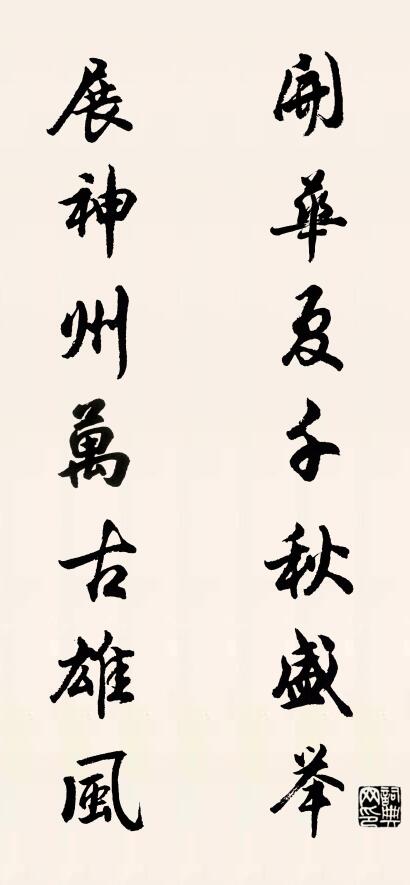 開華夏千秋盛举
展神州萬古雄風
詞典网印